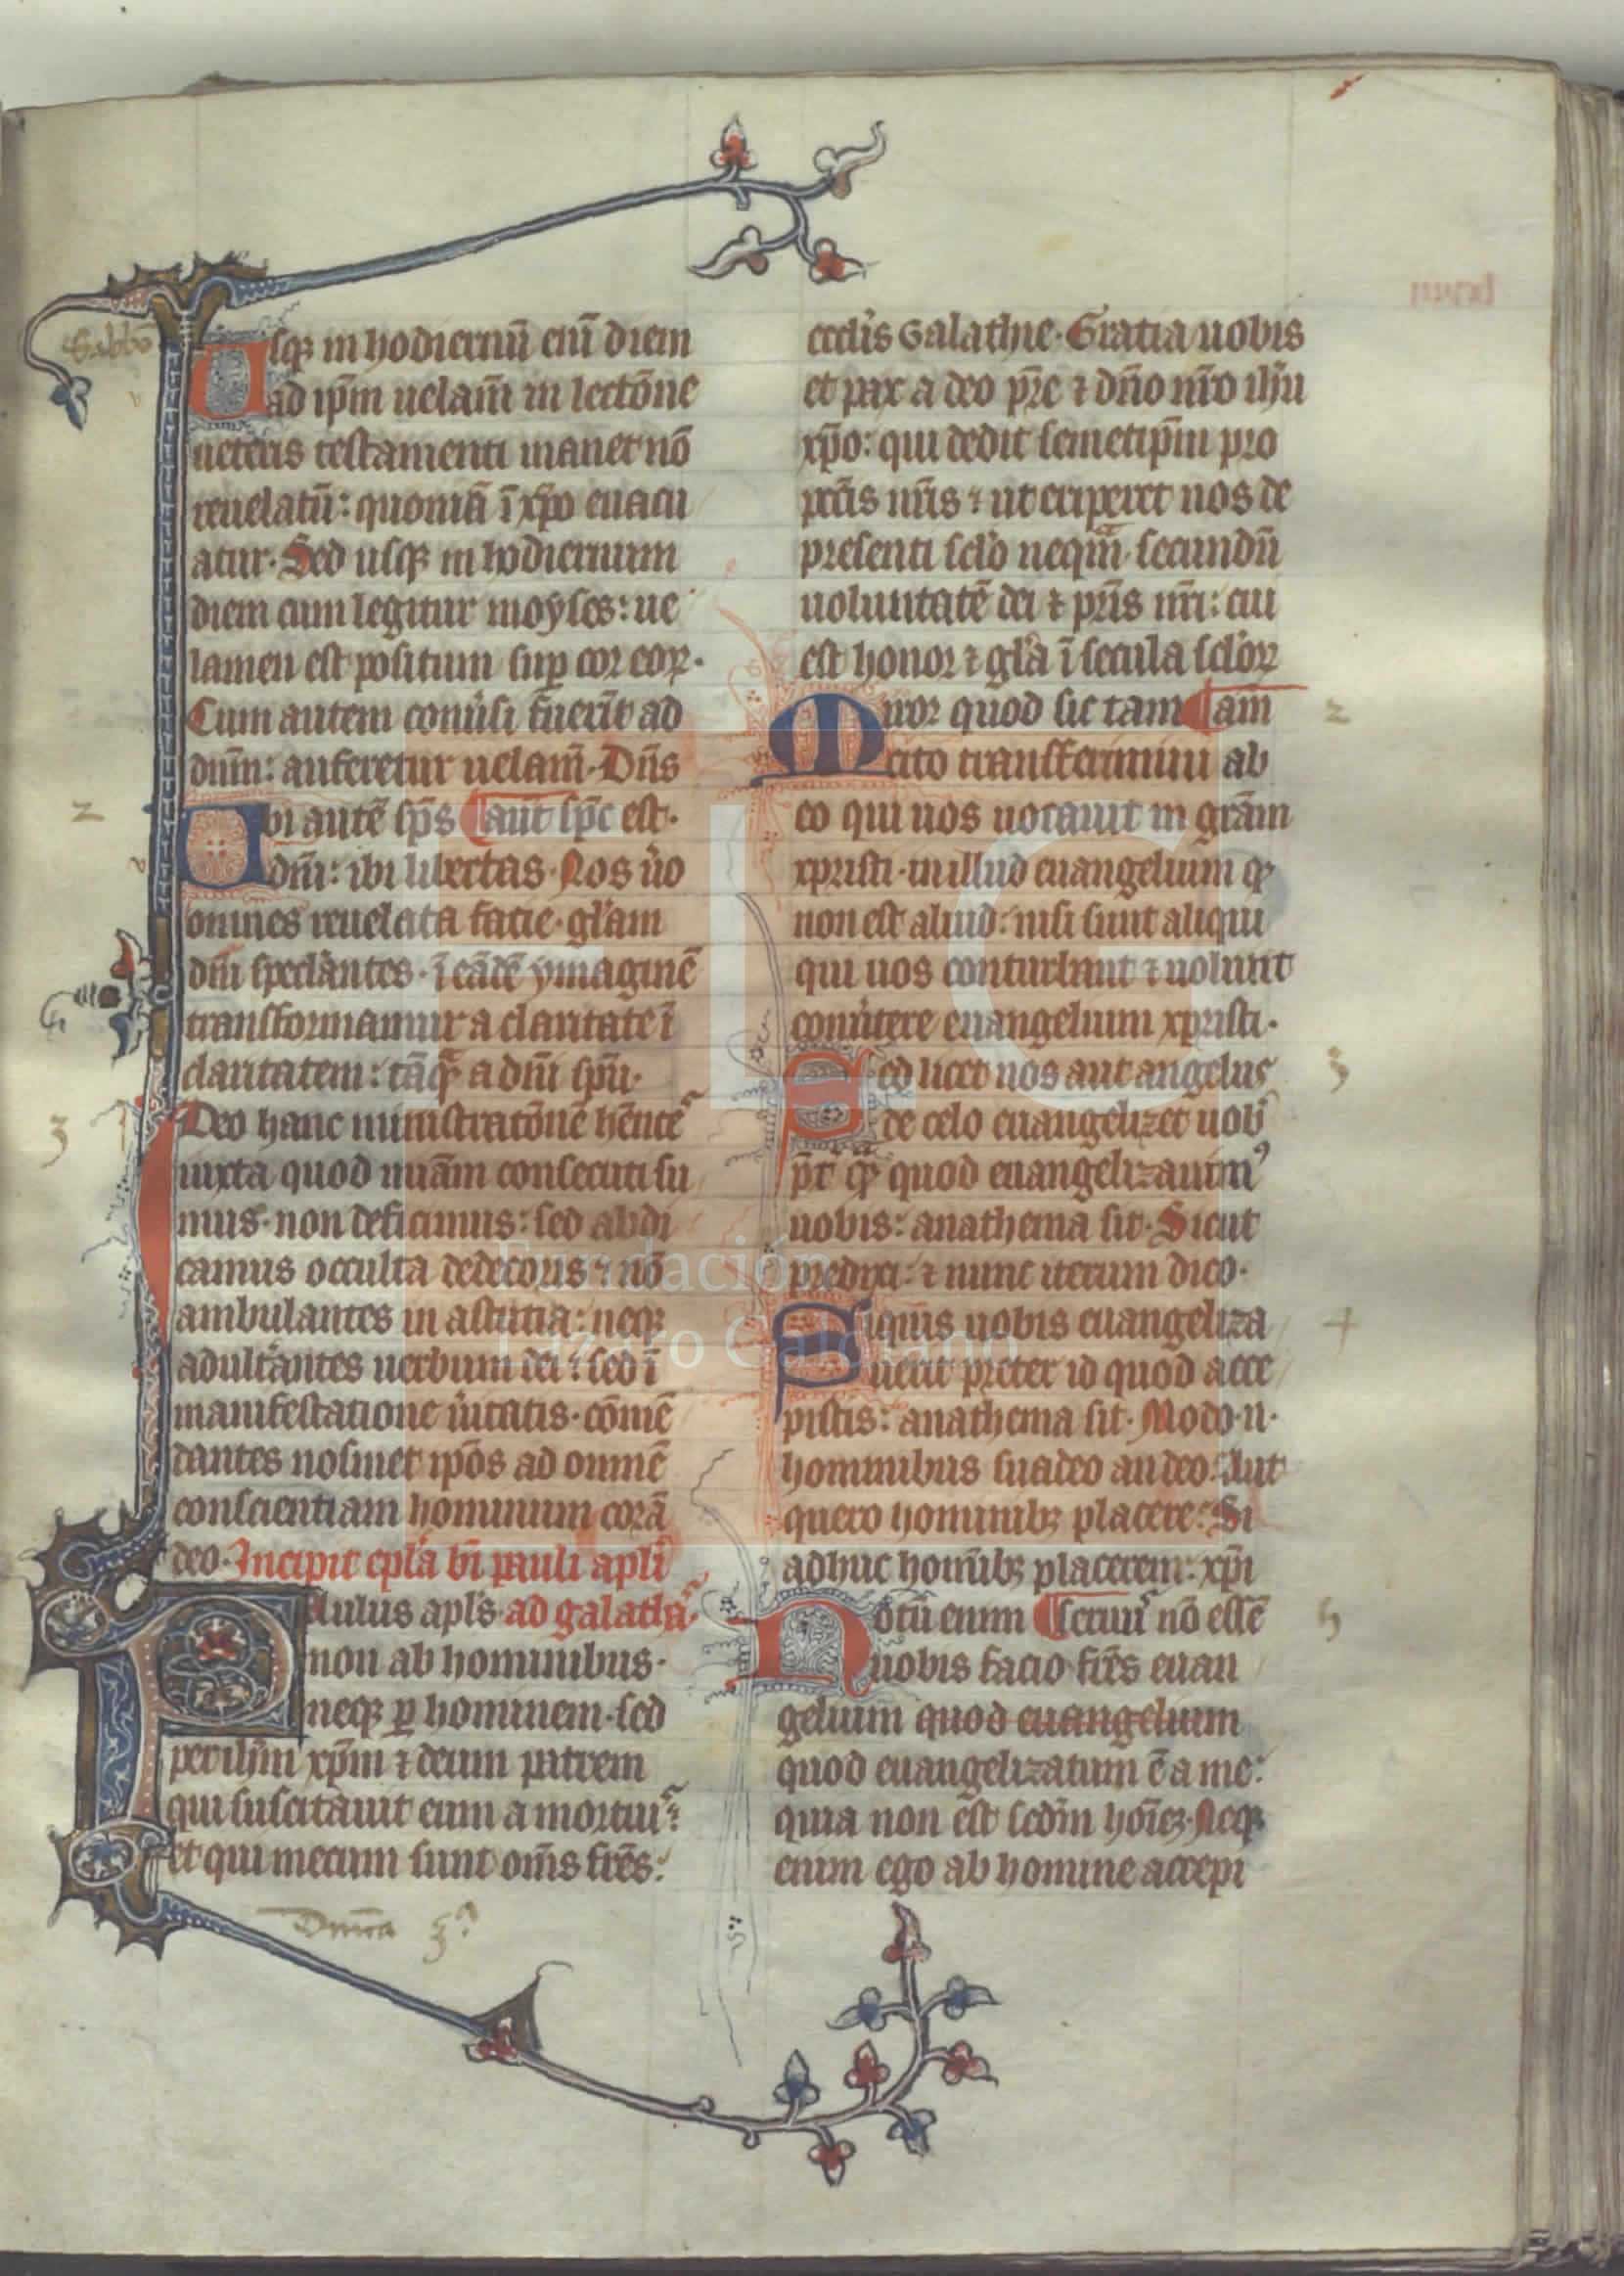 Sabbo
Usqꝫ in hodiernū eni᷑ diem
ad ip̄m uelam̄ in lectōne
ueteris testamenti manet nō
reuelatū: quoniā ī xp̄o euacu
atur. Sed usqꝫ in hodiernum
diem cum legitur moyses: ue
lamen est positum suꝑ cor eoꝝ.
Cum autem conu̓si fuerīt ad
dn̄m: auferetur uelam̄. Dn̄s
Ubi autē sp̄s ¶ aut̄ sp̄c est.
dn̄i: ibi libertas. Nos ůo
omnes reuelata facie. gl̓am
dn̄i specl̓antes. ī eādē ymaginē
transformamur a claritate ī
claritatem: tāqᷓ a dn̄i sp̄u.
Ideo hanc ministratōnē hēnte᷑
iuxta quod miām consecuti su
mus. non deficimus: sed abdi
camus occulta dedecoris: nō
ambulantes in astutia: neqꝫ
adult̓antes uerbum dei: sed ī
manifestatione u̓itatis. cōmē
dantes nosmet ip̄os ad omnē
conscientiam hominum corā
deo. Incipit epl̓a bī pauli apl̓i
Paulus apl̓s. ad galatha᷑.
non ab hominibus.
neqꝫ ꝑ hominem. sed
per ih̄m xp̄m ⁊ deum patrem
qui suscitauit eum a mortui᷑:
et qui mecum sunt om̄s fr̄es:
Dm̄ca 3ᵃ
eccl̓is Galathie. Gratia uobis
et pax a deo pr̄e ⁊ dn̄o nr̄o ih̄u
xp̄o: qui dedit semetip̄m pro
pctīs nr̄is: ut eriperet nos de
presenti sclo̓ neqᷓm. secundū
uoluntatē dei ⁊ pr̄is nr̄i: cui
est honor ⁊ gl̓a ī secula scl̓oꝝ
Miror quod sic tam ¶ am̄
cito transferimini ab
eo qui uos uocauit in grām
xpristi. in illud euangelium qꝫ
non est aliud: nisi sunt aliqui
qui uos conturbant ⁊ uolunt
conu̓tere euangelium xpristi.
Sed licet nos aut angelus
de celo euangelizet uob᷑
p̄t̓ qᷓ quod euangelizauimꝰ
uobis: anathema sit. Sicut
predixi: ⁊ nunc iterum dico.
Siquis uobis euangeliza
uerit preter id quod acce
pistis: anathema sit. Modo .n.
hominibus suadeo an deo: Aut
quero hominibꝫ placere: Si
adhuc homībꝫ placerem: xp̄i
Notū enim ¶ seruu᷑ nō essē
uobis facio fr̄es euan
gelium quod euangelium
quod euangelizatum ē a me:
quia non est scd̄m hoīeꝫ. Neqꝫ
enim ego ab homine accepi
2
3
2
3
4
5
Fundación
Lázaro Galdiano